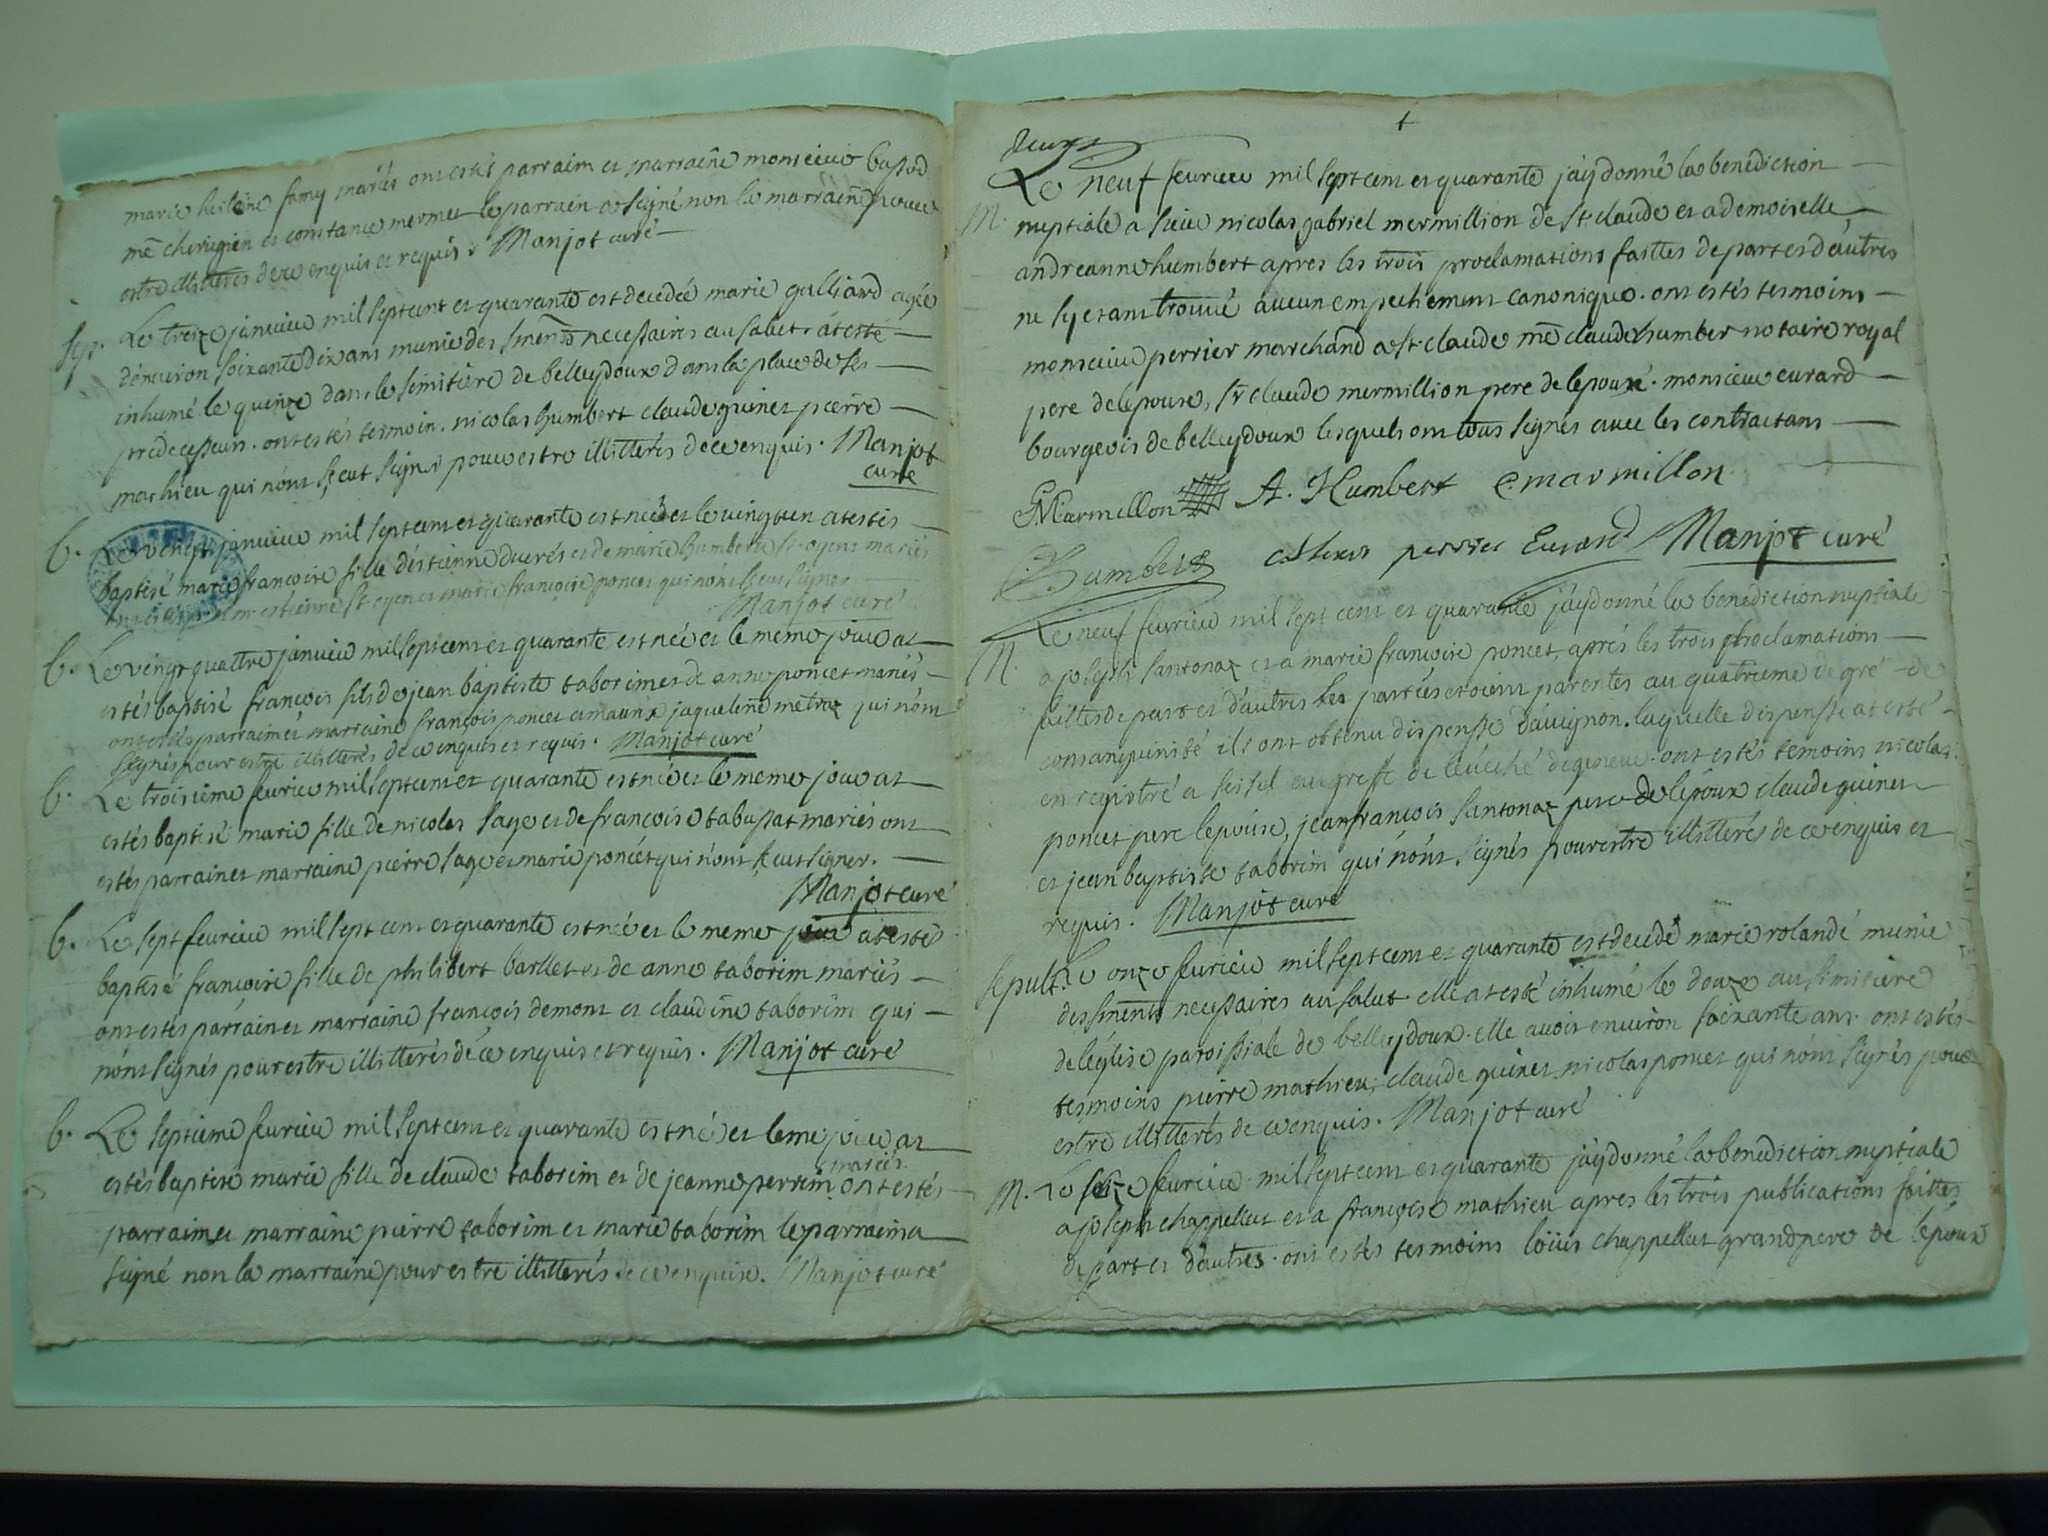 marie heslene famy mariés ont estés parrain et marraine monsieur bassod
me chirugien et constance mermet le parrain a signé non la marraine pour
estre illitterés de ce enquis et requis. Manjot curé
sep. Le treize janvier mil sept cent et quarante est decedée marie galliard agée
d'environ soixante dix ans munie des sments necessaires au salut. at esté
inhumé le quinze dans le simitiere de belleydoux dans la place de ses
prédecesseurs. ont estés tesmoin. nicolas humbert claude guinet pierre
mathieu qui n'ont sçeut signer pour estre illitterés de ce enquis. Manjot
curé
b. Le vengt janvier mil sept cent et quarante est née et le vingt un at estés
baptisé marie françoise fille d'estienne et de marie humbert st oyent mariés
estienne st oyent et marie françoise poncet qui n'ont sceut signer
Manjot curé
b. Le vingt quattre janvier mil sept cent et quarante est née et le meme jour at
estés baptisé françois fils de jean baptiste taborim et de anne poncet mariés
ont estés parrain et marraine françois poncet jaqueline metraz qui n'ont
signés pour estre illitterés de ce enquis et requis. Manjot curé
b. Le troisieme fevrier mil sept cent et quarante est née et le meme jour at
estés baptisé marie fille de nicolas sage et de françoise tabussat mariés ont
estés parrain et marraine pierre sage et marie poncet qui n'ont sçeut signer.
Manjot curé
b. Le sept fevrier mil sept cent et quarante est née et le meme jour at esté
baptisé françoise fille de philibert barllet et de anne taborim mariés
ont estés parrain et marraine françois demont et claudine taborim qui
n'ont signés pour estre illitterés de ce enquis et requis. Manjot curé
b. Le septieme fevrier mil sept cent et quarante est née et le meme jour at
mariés
estés baptisé marie fille de claude taborim et de jeanne perrin ont estés
parrain et marraine pierre taborim et marie taborim le parrain a
signé non la marraine pour estre illitterés de ce enquise. Manjot curé
deux
M. Le neuf fevrier mil sept cent et quarante j'ay donné la benediction
nuptiale a sieur nicolas gabriel mermillion de st claude et a demoiselle
andreanne humbert apres les trois proclamations faittes de part et d'autres
ne s'y etant trouvé aucun empechement canonique. ont estés tesmoins
monsieur perrier marchand a st claude me claude humber notaire royal
pere de l'epouse, sr claude mermillion pere de l'epoux. monsieur eurard
bourgeois de belleydoux lesquels ont tous signés avec les contractans
GMarmillon A. Humbert C. marmillon
C. Humbert perrier Eurard Manjot curé
M. Le neuf fevrier mil sept cent et quarante j'ay donné la benediction nuptiale
a joseph santonaz et a marie françoise poncet, aprés les trois proclamations
faittes de part et d'autres les parties etoient parentes au quatrieme degré de
consanguinité ils ont obtenu dispensse d'avignon. laquelle dispensse at esté
enregistré a seissel au greffe de l'evéché de geneve. ont estés temoins nicolas
poncet pere l'epouse, jean françois santonaz pere de l'epoux claude guinet
et jean baptiste taborim qui n'ont signés pour estre illitterés de ce enquis et
requis. Manjot curé
sepult. Le onze fevrier mil sept cent et quarante est decedé marie rolande munie
des sments necessaires au salut. elle at esté inhumé le douze au simitiere
de l'église paroissiale de belleydoux. elle avoit environ soixante ans. ont estés
tesmoins pierre mathieu, claude guinet, nicolas poncet qui n'ont signés pour
estre illitterés de ce enquis. Manjot curé
M. Le seize fevrier mil sept cent et quarante j'ay donné la benediction nuptiale
a joseph chappellut et a françoise mathieu apres les trois publications faittes
de part et d'autres. ont estés tesmoins loüis chappellut grand pere de l'epoux